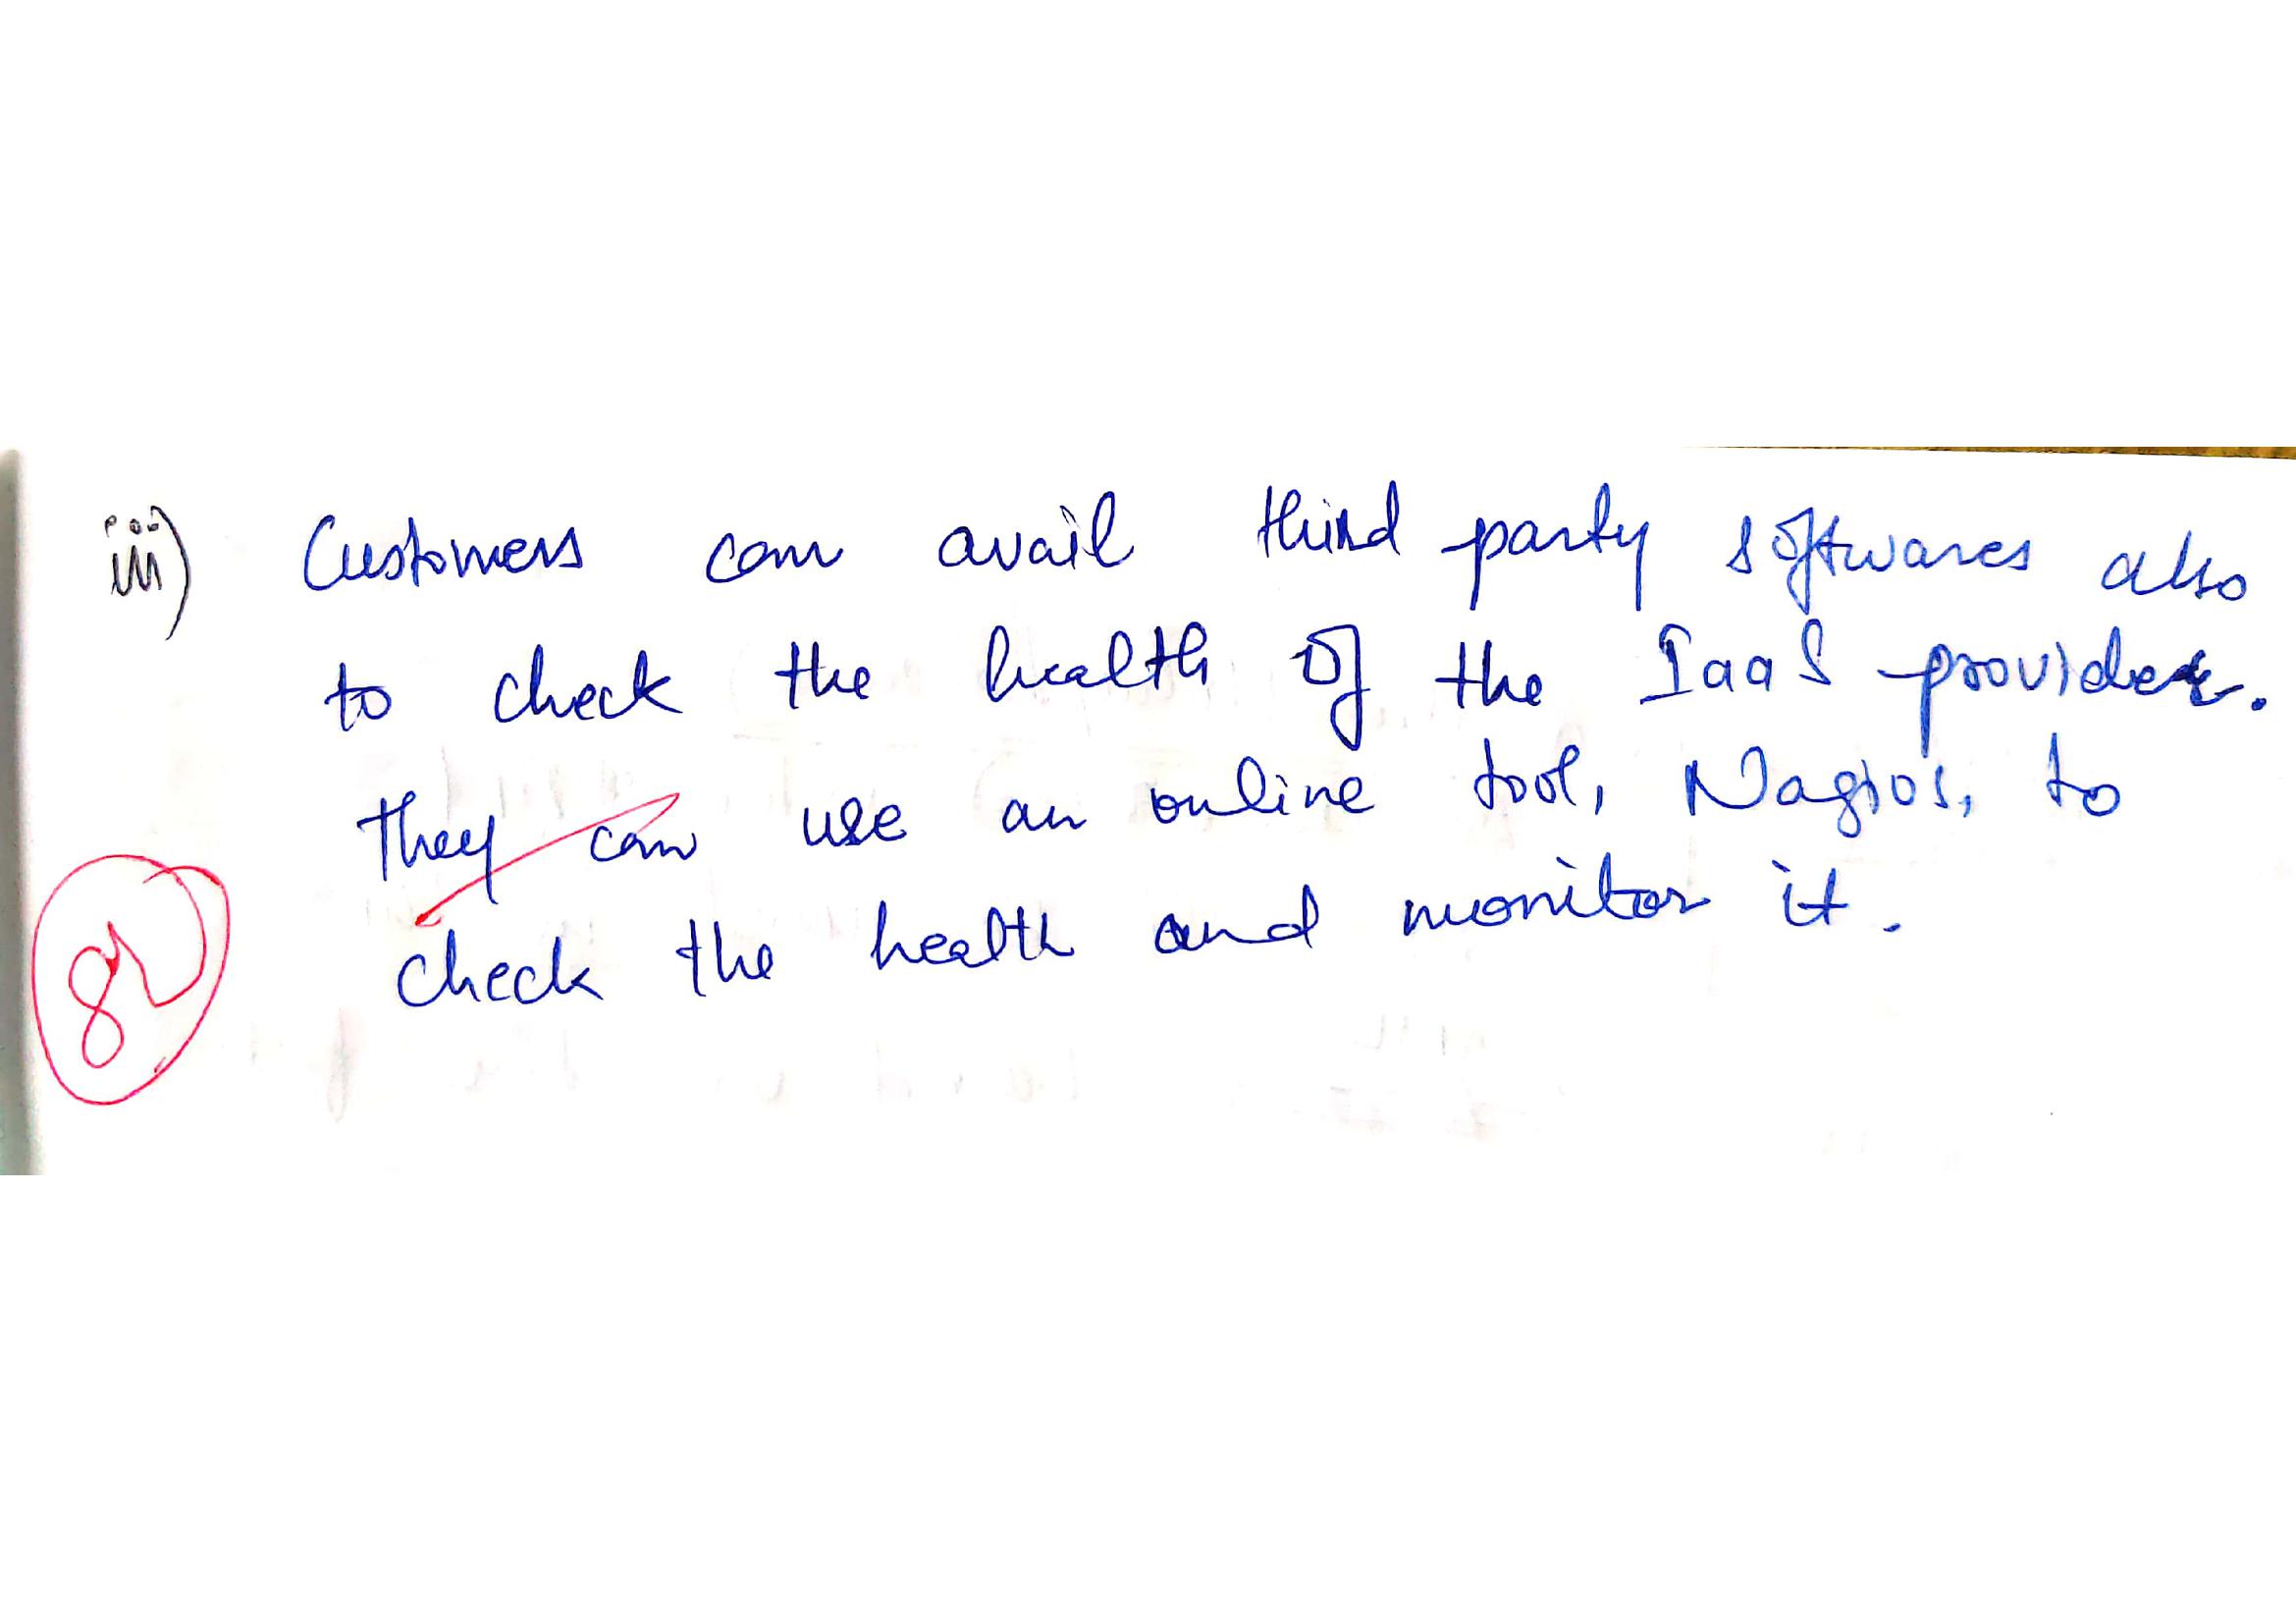 iii) Customers can avail third party softwares also
to check the health of the IaaS provider.
They can use an online tool, Nagios, to
check the health and monitor it.
8